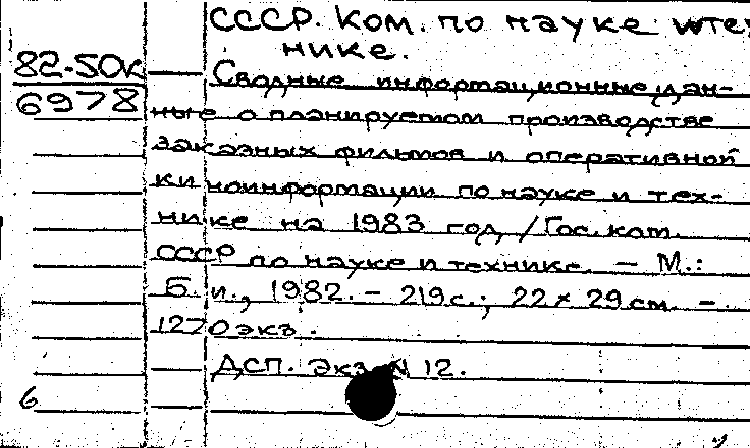 СССР. Ком. по науке и те
нике.
82-50к
6978
Сводные информационные дан-
ные о планируемом производстве
заказных фильмов и оперативной
киноинформации по науке и тех-
нике на 1983 год / Гос. ком.
СССР по науке и технике. — М.:
Б. и., 1982. - 219 с.; 22 × 29 см. -
1270 экз.
ДСП. Экз. N 12.
6